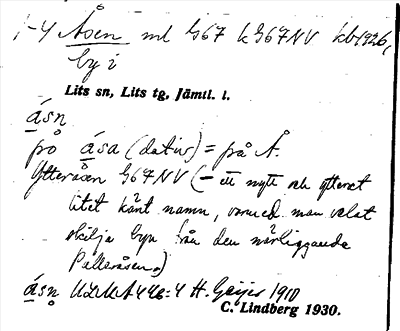 1-4 Åsen ml G67 k G67NV kb1926,
by i
Lits sn, Lits tg. Jämtl. l.
ásn
på ása (dativ) = på Å.
Ytteråsen G67NV (– ett nytt och ytterst
litet känt namn, varmed man velat
skilja byn från den närliggande
Pålleråsen.)
ásn ULMA 446:4 H. Geijer 1910
C. Lindberg 1930.